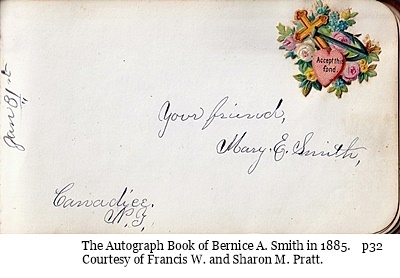 Jan 31st
Accept this
fond
Your friend,
Mary. E. Smith,
Canadice.
N.Y,
The Autograph Book of Bernice A. Smith in 1885. p32
Courtesy of Francis W. and Sharon M. Pratt.